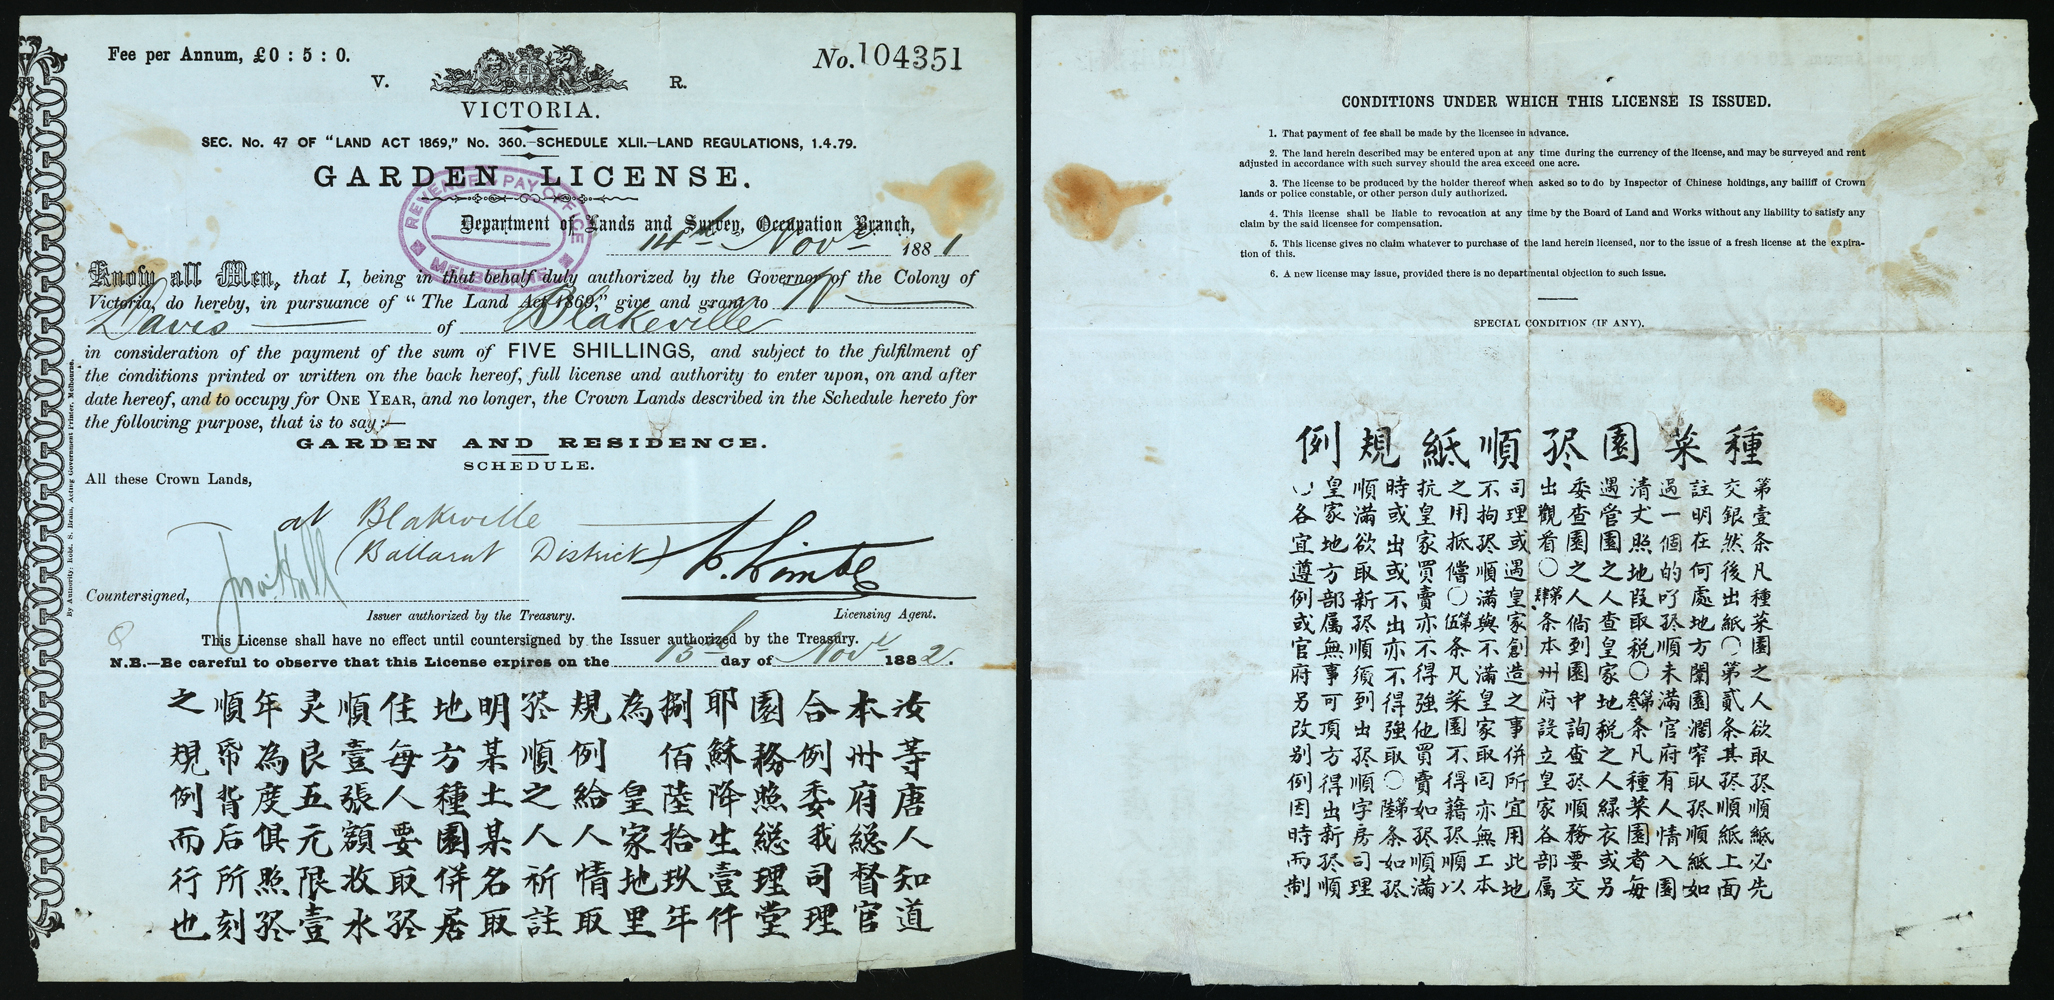 Fee per Annum, £0 : 5 : 0.
No. 104351
V. R.
VICTORIA.
SEC. No. 47 OF "LAND ACT 1869," No. 360.—SCHEDULE XLII.—LAND REGULATIONS, 1.4.79.
GARDEN LICENSE.
REVENUE & PAY OFFICE
MELBOURNE
Department of Lands and Survey, Occupation Branch,
14th Novr 1881
Know all Men, that I, being in that behalf duly authorized by the Governor of the Colony of
Victoria, do hereby, in pursuance of "The Land Act 1869," give and grant to W
Davis of Blakeville
in consideration of the payment of the sum of FIVE SHILLINGS, and subject to the fulfilment of
the conditions printed or written on the back hereof, full license and authority to enter upon, on and after
date hereof, and to occupy for ONE YEAR, and no longer, the Crown Lands described in the Schedule hereto for
the following purpose, that is to say:—
GARDEN AND RESIDENCE.
SCHEDULE.
All these Crown Lands,
at Blakeville
(Ballarat District)
Countersigned,
Issuer authorized by the Treasury.
Licensing Agent.
This License shall have no effect until countersigned by the Issuer authorized by the Treasury.
N.B.—Be careful to observe that this License expires on the 13th day of Novr 1882.
By Authority: Robt. S. Brain, Acting Government Printer, Melbourne.
汝等唐人知道
本州府総督官
合例委我司理
園務照総理堂
耶穌降生壹仟
捌佰陸拾玖年
為 皇家地里
規例給人情取
孻順之人祈註
明某土某名取
地方種園併居
住每人要取孻
順壹張額收水
灵艮五元限壹
年為度俱照孻
順帋背后所刻
之規例而行也
CONDITIONS UNDER WHICH THIS LICENSE IS ISSUED.
1. That payment of fee shall be made by the licensee in advance.
2. The land herein described may be entered upon at any time during the currency of the license, and may be surveyed and rent
adjusted in accordance with such survey should the area exceed one acre.
3. The license to be produced by the holder thereof when asked so to do by Inspector of Chinese holdings, any bailiff of Crown
lands or police constable, or other person duly authorized.
4. This license shall be liable to revocation at any time by the Board of Land and Works without any liability to satisfy any
claim by the said licensee for compensation.
5. This license gives no claim whatever to purchase of the land herein licensed, nor to the issue of a fresh license at the expira-
tion of this.
6. A new license may issue, provided there is no departmental objection to such issue.
SPECIAL CONDITION (IF ANY).
種菜園孻順紙規例
第壹条凡種菜園之人欲取孻順紙必先
交銀然後出紙〇第貳条其孻順紙上面
註明在何處地方闊園濶窄取孻順紙如
過一個的吖孻順未滿官府有人情入園
清丈照地段取税〇第叁条凡種菜園者每
遇管園之人查皇家地税之人緑衣或另
委查園之人倘到園中詢查孻順務要交
出觀看〇第肆条本州府設立皇家各部属
司理或遇皇家創造之事併所宜用此地
不拘孻順滿與不滿皇家取囘亦無工本
之用抵償〇第伍条凡菜園不得藉孻順以
抗皇家買賣亦不得強他買賣如孻順滿
時或出或不出亦不得強取〇第陸条如孻
順滿欲取新孻順須到出孻順字房司理
皇家地方部属無事可頂方得出新孻順
〇各宜遵例或官府另改別例因時而制